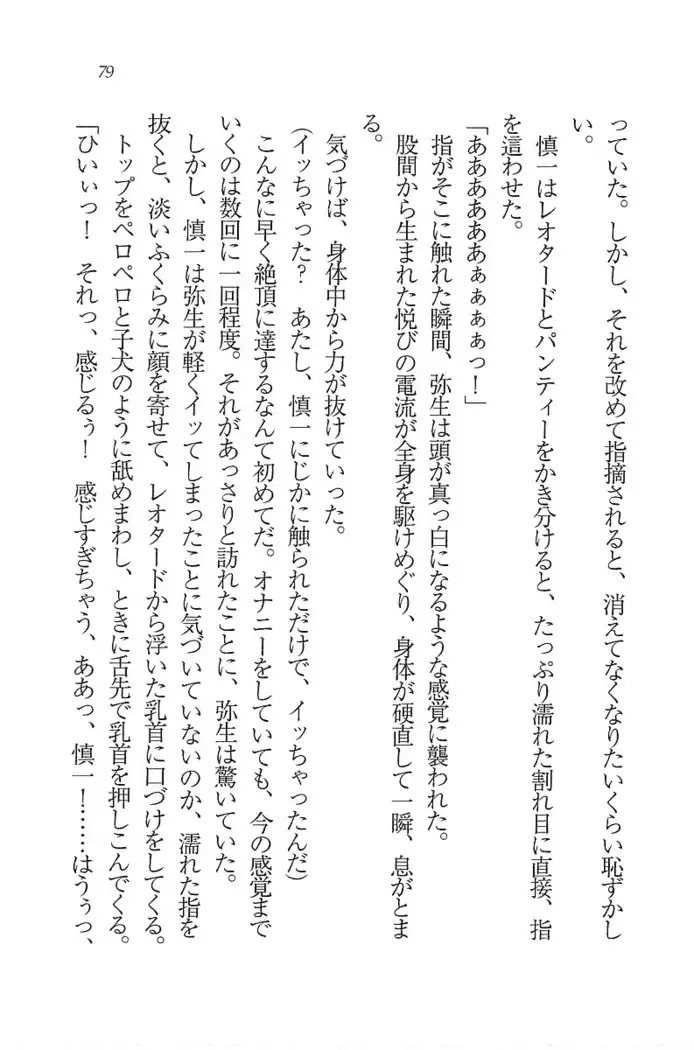 79
っていた。しかし、それを改めて指摘されると、消えてなくなりたいくらい恥ずかし
い。
慎一はレオタードとパンティーをかき分けると、たっぷり濡れた割れ目に直接、指
を這わせた。
「ああああああぁぁぁぁっ！」
指がそこに触れた瞬間、弥生は頭が真っ白になるような感覚に襲われた。
股間から生まれた悦びの電流が全身を駆けめぐり、身体が硬直して一瞬、息がとま
る。
気づけば、身体中から力が抜けていった。
（イッちゃった？　あたし、慎一にじかに触られただけで、イッちゃったんだ）
こんなに早く絶頂に達するなんて初めてだ。オナニーをしていても、今の感覚まで
いくのは数回に一回程度。それがあっさりと訪れたことに、弥生は驚いていた。
しかし、慎一は弥生が軽くイッてしまったことに気づいていないのか、濡れた指を
抜くと、淡いふくらみに顔を寄せて、レオタードから浮いた乳首に口づけをしてくる。
トップをペロペロと子犬のように舐めまわし、ときに舌先で乳首を押しこんでくる。
「ひいぃっ！　それっ、感じるぅ！　感じすぎちゃう、ああっ、慎一！……はうぅっ、